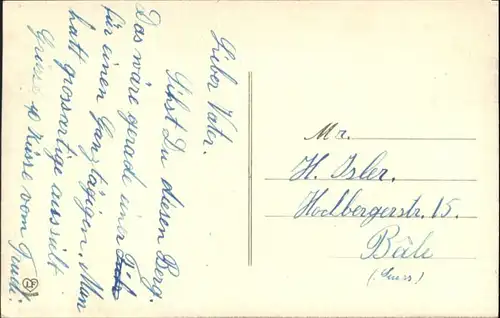 Lieber Vater.
Sihst Du diesen Berg.
Das wäre gerade einer
für einen Ganztägigen. Man
hatt grossartige aussiht
Grüsse & Küsse vom Trudi.
Mr.
H. Isler.
Hochbergerstr. 15.
Bâle
(Suiss.)